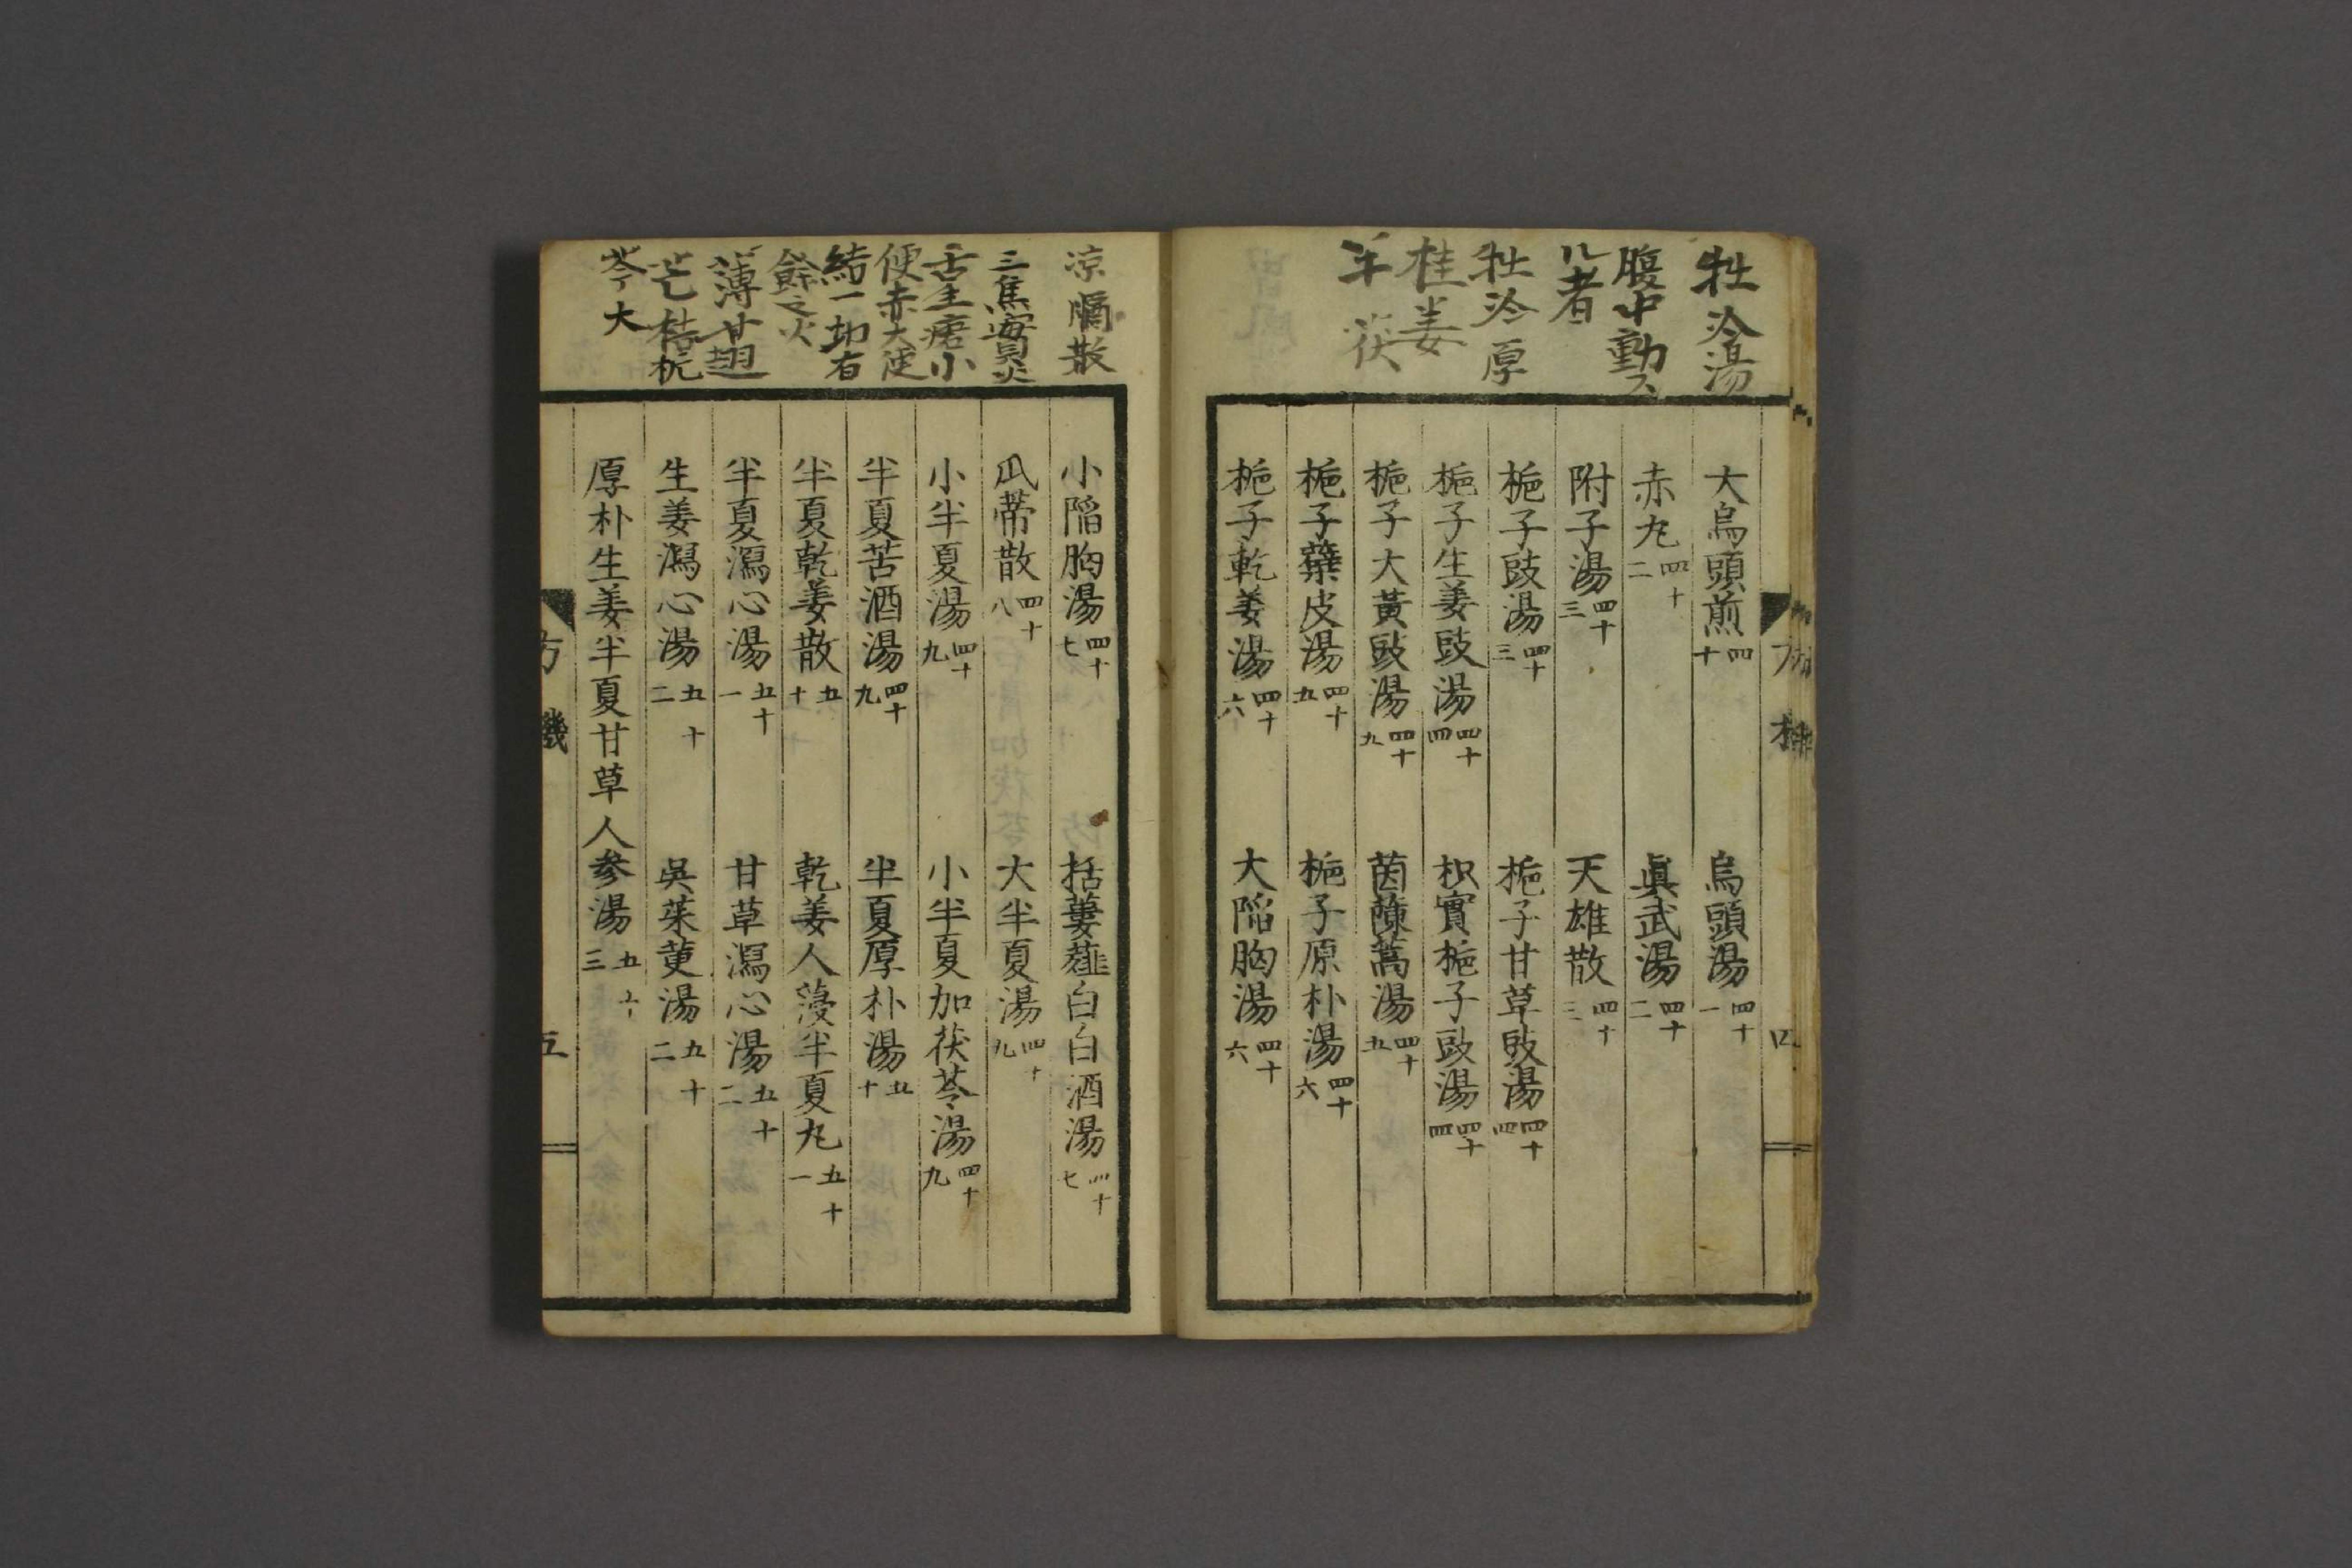 牡冷湯
腹中動ス
ル者
牡冷厚
桂姜
羊茯
大烏頭煎 四十
烏頭湯 四十一
赤丸 四十二
眞武湯 四十二
附子湯 四十三
天雄散 四十三
梔子豉湯 四十三
梔子甘草豉湯 四十四
梔子生姜豉湯 四十四
枳實梔子豉湯 四十四
梔子大黃豉湯 四十九
茵蔯蒿湯 四十五
梔子蘗皮湯 四十五
梔子原朴湯 四十六
梔子乾姜湯 四十六
大陷胸湯 四十六
涼膈散
三焦實火
舌生瘡小
便赤大便
結一切有
餘之火
薄甘翹
芒桔梔
芩大
小陷胸湯 四十七
括蔞薤白白酒湯 四十七
瓜蔕散 四十八
大半夏湯 四十九
小半夏湯 四十九
小半夏加茯苓湯 四十九
半夏苦酒湯 四十九
半夏厚朴湯 五十
半夏乾姜散 五十
乾姜人蓡半夏丸 五十一
半夏瀉心湯 五十一
甘草瀉心湯 五十二
生姜瀉心湯 五十二
吳茱萸湯 五十二
厚朴生姜半夏甘草人參湯 五十三
方機
五